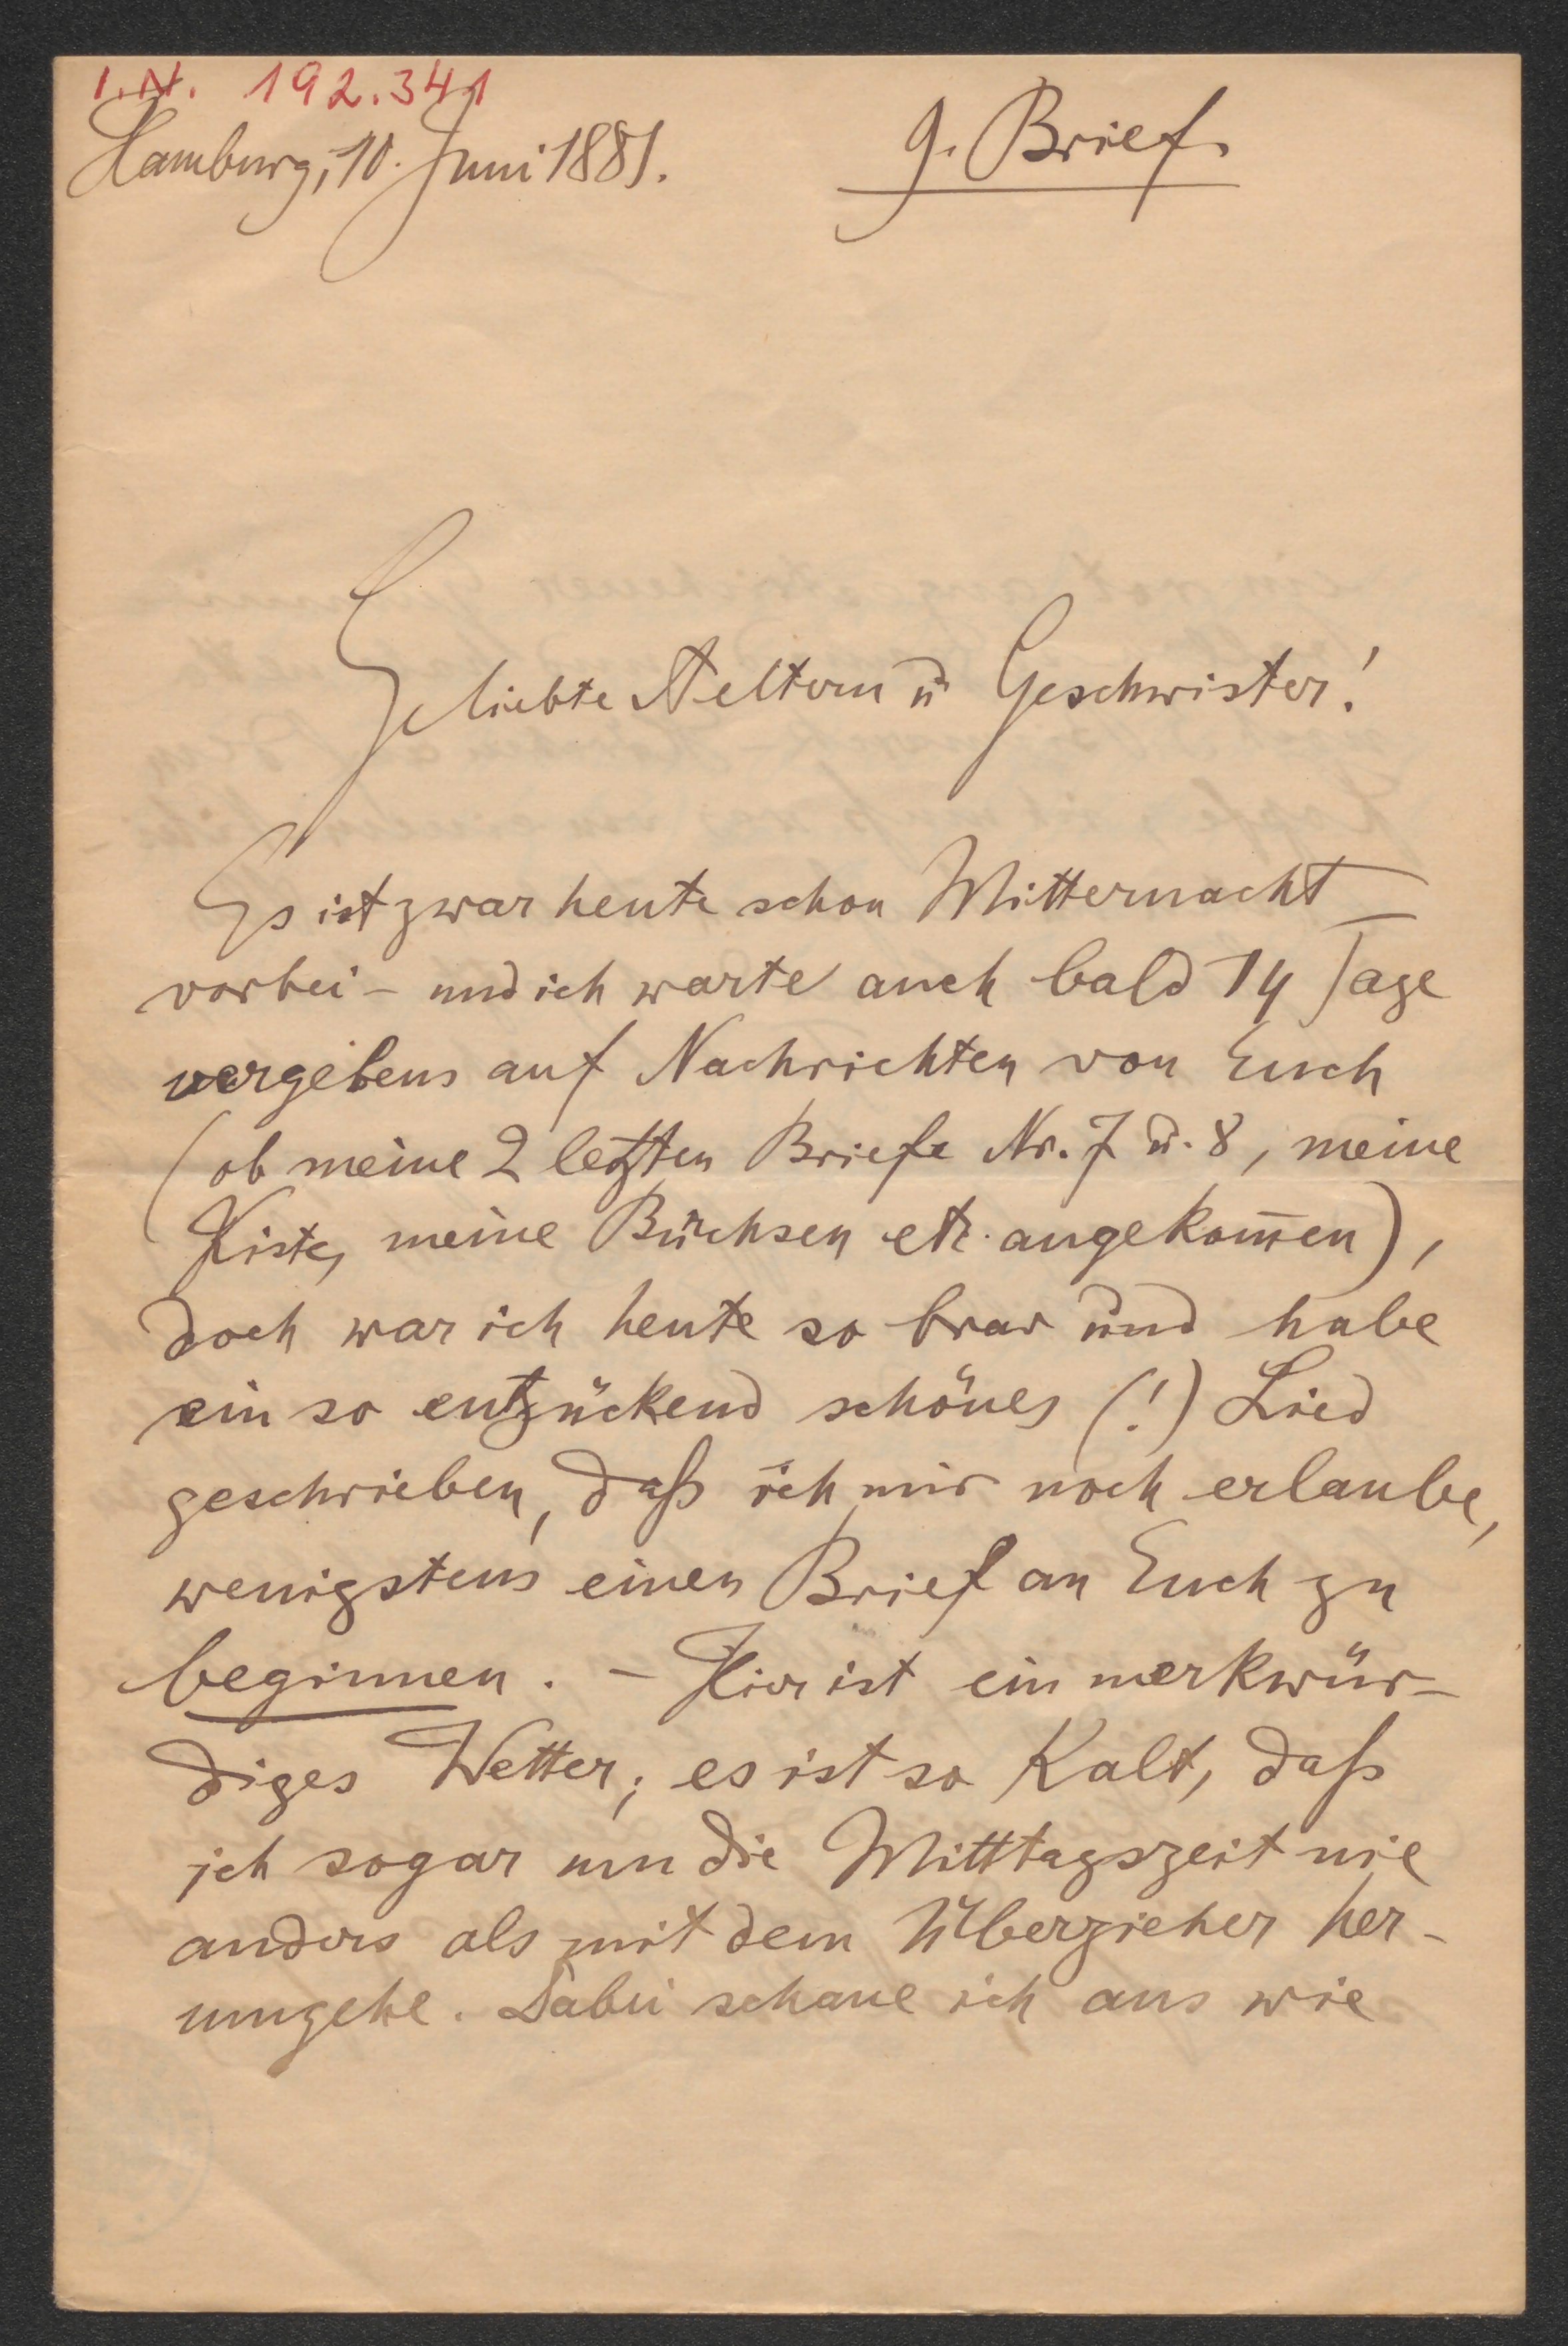 I.N. 192.341
Hamburg, 10. Juni 1881.
9. Brief.
Geliebte Aeltern u Geschwister!
Es ist zwar heute schon Mitternacht
vorbei – und ich warte auch bald 14 Tage
vergebens auf Nachrichten von Euch
(ob meine 2 letzten Briefe Nr. 7 u. 8, meine
Kiste, meine Büchsen etc. angekom̄en),
doch war ich heute so brav und habe
ein so entzückend schönes (!) Lied
geschrieben, daß ich mir noch erlaube,
wenigstens einen Brief an Euch zu
beginnen. – Hier ist ein merkwür-
diges Wetter; es ist so kalt, daß
ich sogar um die Mitttagszeit nie
anders als mit dem Überzieher her-
umgehe. Dabei schaue ich aus wie